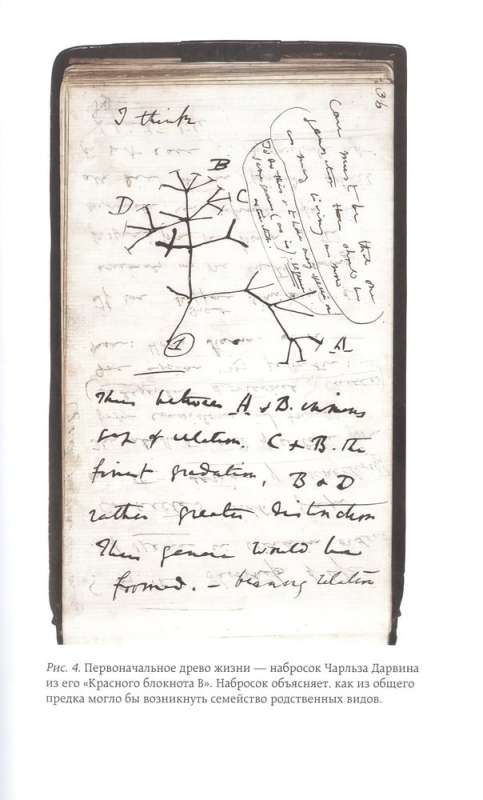 36
I think
Case must be that one
generation then should be
as many living as now
To do this & to have many species in
same genus (as is) requires
extinction.
B
D
C
1
A
Thus between A & B. immens
gap of relation. C & B. the
finest gradation, B & D
rather greater distinction
Thus genera would be
formed. — bearing relation
Рис. 4. Первоначальное древо жизни — набросок Чарльза Дарвина
из его «Красного блокнота B». Набросок объясняет, как из общего
предка могло бы возникнуть семейство родственных видов.